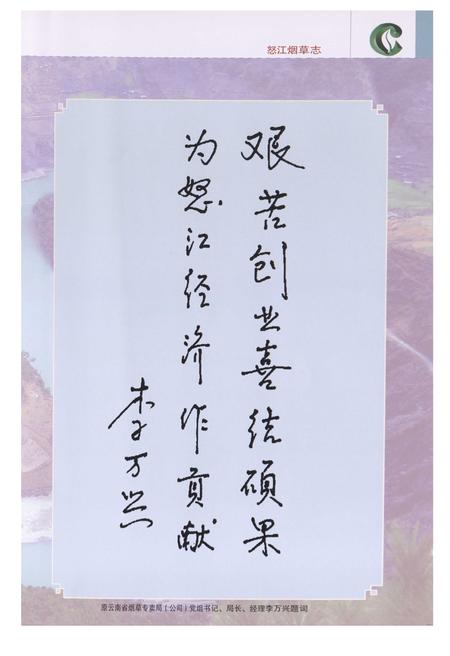 怒江烟草志
艰苦创业喜结硕果
为怒江经济作贡献
李万兴
原云南省烟草专卖局（公司）党组书记、局长、经理李万兴题词